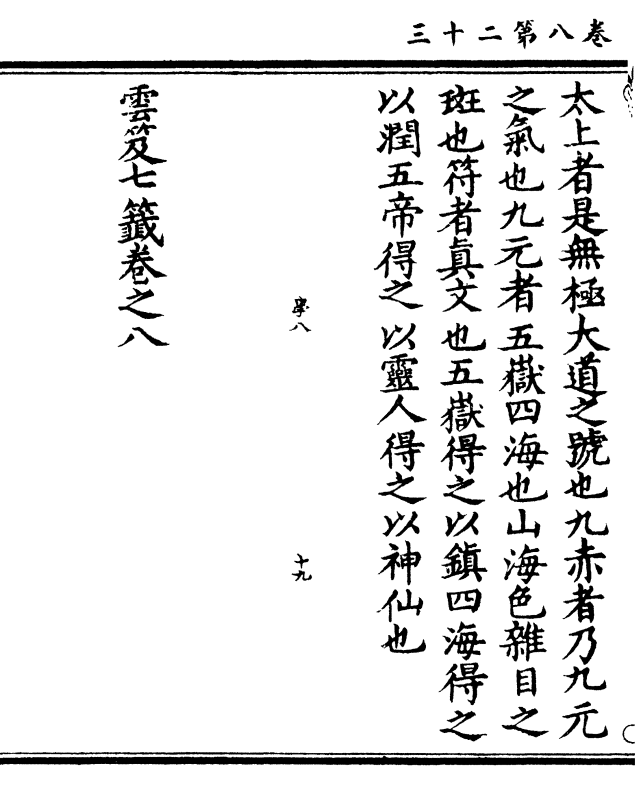 卷八第二十三
太上者是無極大道之號也九赤者乃九元
之氣也九元者五嶽四海也山海色雜目之
斑也符者眞文也五嶽得之以鎮四海得之
以潤五帝得之以靈人得之以神仙也
學八
十九
雲笈七籤卷之八